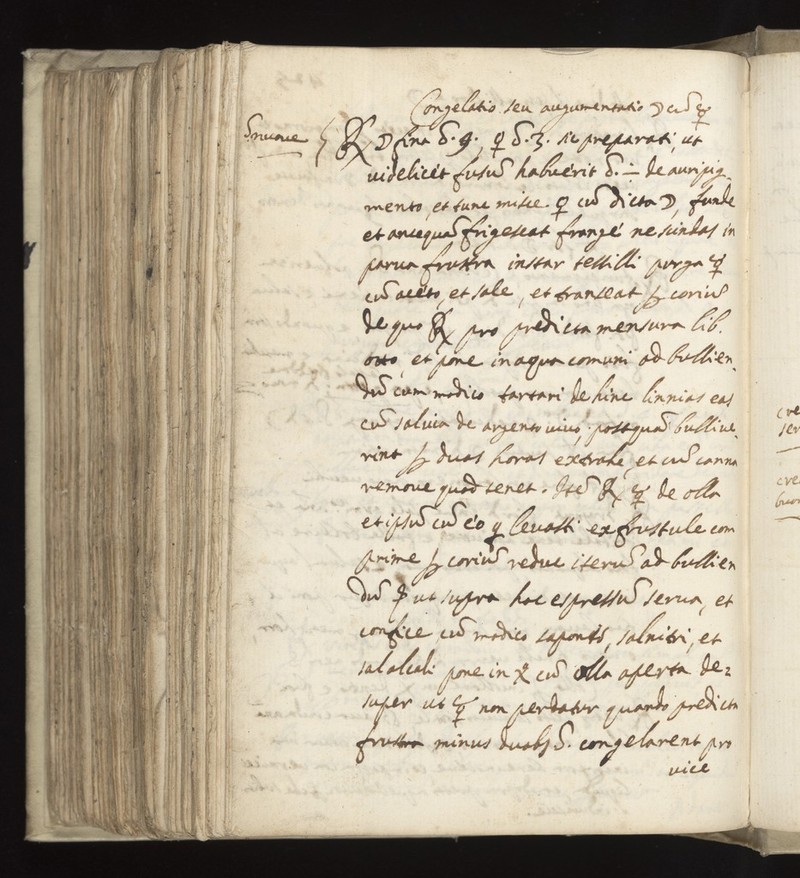 Congelatio seu augumentatio ☽ cū ☿
℞ ☽ fina ℥. 9. ♀ ℥. 3. sic preparati, ut
uidelicet fusū habuerit ℥. de auripig-
mento, et tunc misce ♀ cū dicta ☽, funde
et antequā frigescat frange ne scindas in
parua frustra instar tessilli purga ☿
cū aceto, et sale, et transeat ꝑ coriū
de quo ℞ pro predicta mensura lib.
otto, et pone in aqua comuni ad bullien-
dū cum modico tartari de hinc linnias eas
cū saluia de argento uiuo, postquā bulliue-
rint ꝑ duas horas extrahe, et cū canna
remoue quod tenet. Itē ℞ ☿ de olla
et ipsū cū eo q leuasti ex frustule com
prime ꝑ coriū reduc iterū ad bullien
dū ut supra hoc espressū serua, et
confice cū modico saponis, salnitri, et
salalcali pone in cū olla aperta de=
super ut ☿ non perdatur quando predicta
frustra minus duabꝫ ℥. congelarent pro
uice